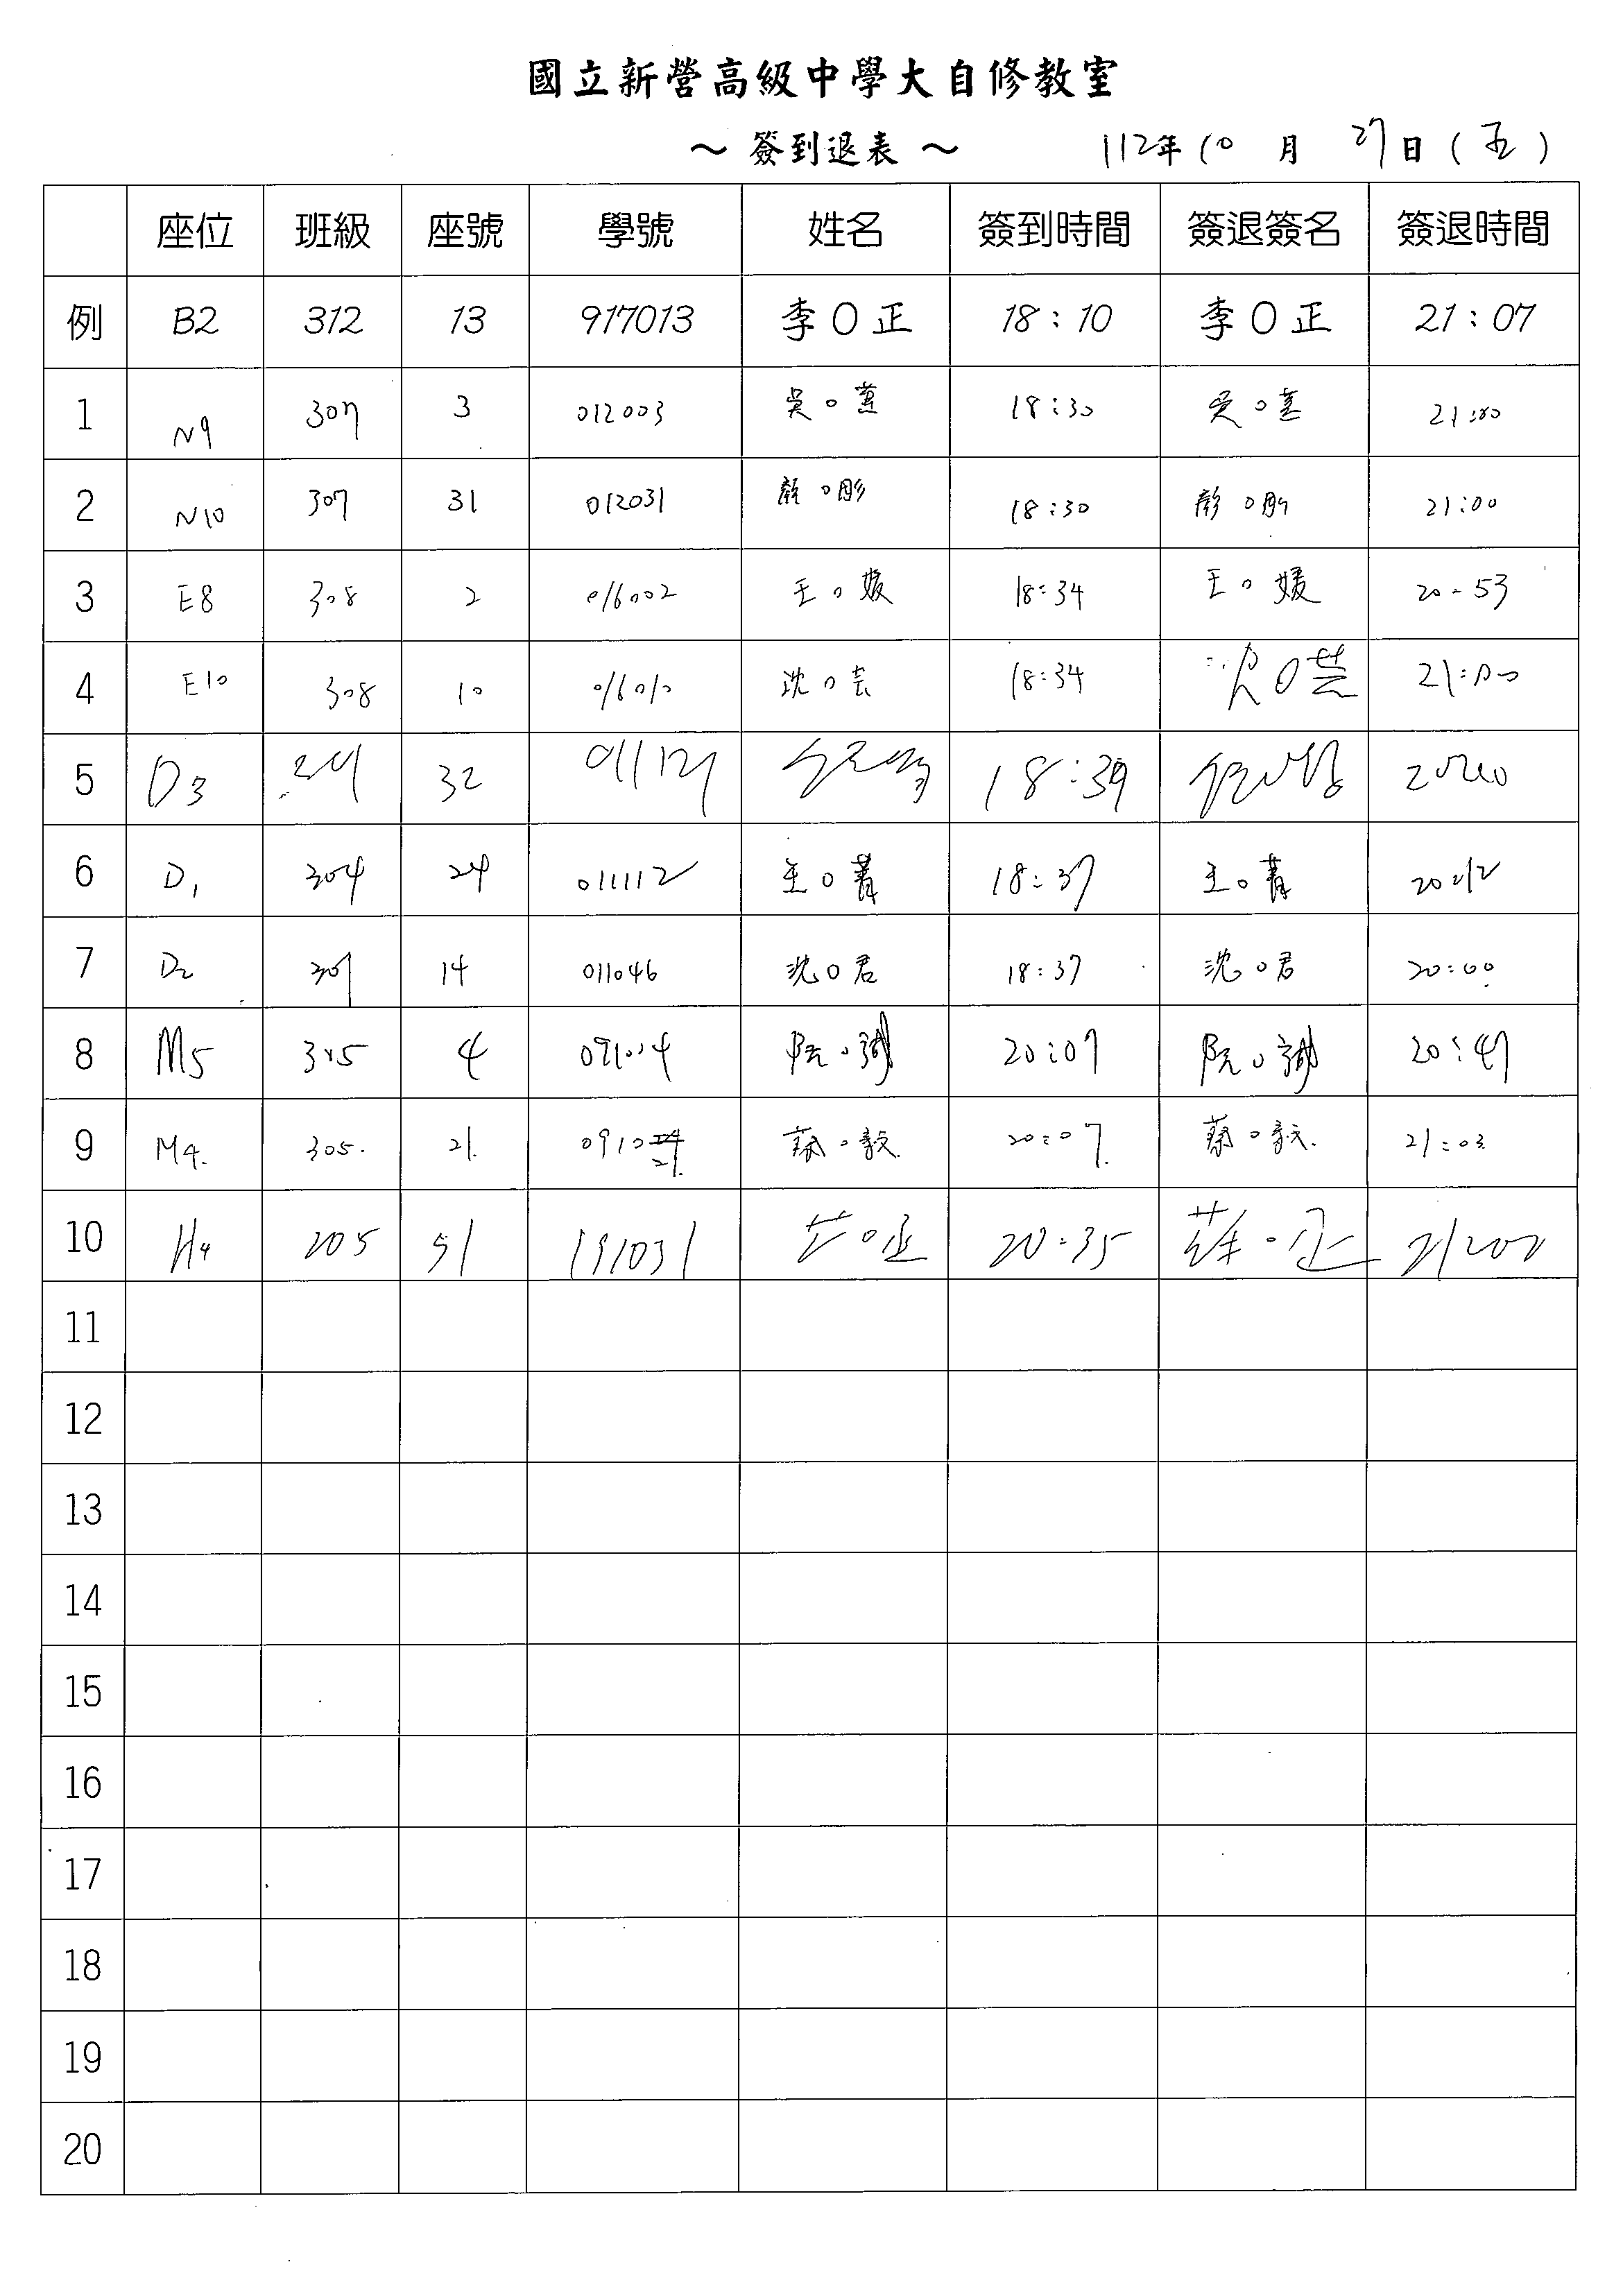 國立新營高級中學大自修教室
～ 簽到退表 ～ 112年 10 月 27日 ( 五 )
座位 班級 座號 學號 姓名 簽到時間 簽退簽名 簽退時間
例 B2 312 13 917013 李O正 18:10 李O正 21:07
1 N9 307 3 012003 吳O蕙 18:30 吳O蕙 21:00
2 N10 307 31 012031 顏O彤 18:30 21:00
3 E8 308 2 016002 王O媛 18:34 王O媛 20:53
4 E10 308 10 016010 沈O芸 18:34 沈O芸 21:00
5 D3 32 18:39
6 D1 304 24 011112 王O菁 18:37 王O菁 20:12
7 D2 14 011046 沈O君 18:37 沈O君 20:00
8 M5 305 4 091004 阮O誠 20:07 阮O誠 20:47
9 M4. 305. 21. 0910 21. 蔡O毅. 20:07. 蔡O毅. 21:03
10 H4 205 31 191031 20:35 21:02
11
12
13
14
15
16
17
18
19
20